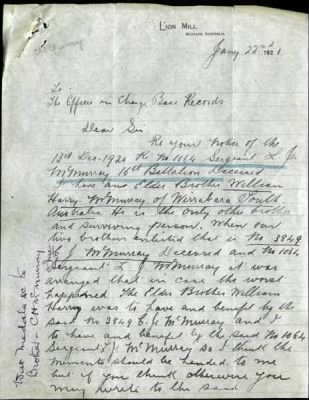 LION MILL
WESTERN AUSTRALIA
Jany 22nd 1921
To
The Officer in Charge Base Records
Dear Sir
Re your Notice of the
13th Dec. 1920 Re No 1114 Sergeant L J
McMurray 16th Battalion Deceased
I have one Elder Brother William
Harry McMurray of Wirrabara South
Australia He is the only other brother
and surviving person. When our
two brothers enlisted that is No 3849
E J McMurray Deceased and No 1064
Sergeant L J McMurray it was
arranged that in case the worst
happened. The Elder Brother William
Harry was to have and benefit by the
said No 3849 E. J McMurray and I
to have and benefit by the said No 1064
Sergeant L J McMurray so I think the
mementos should be handed to me
but if you think otherwise you
may write to the said
Brother - C H McMurray